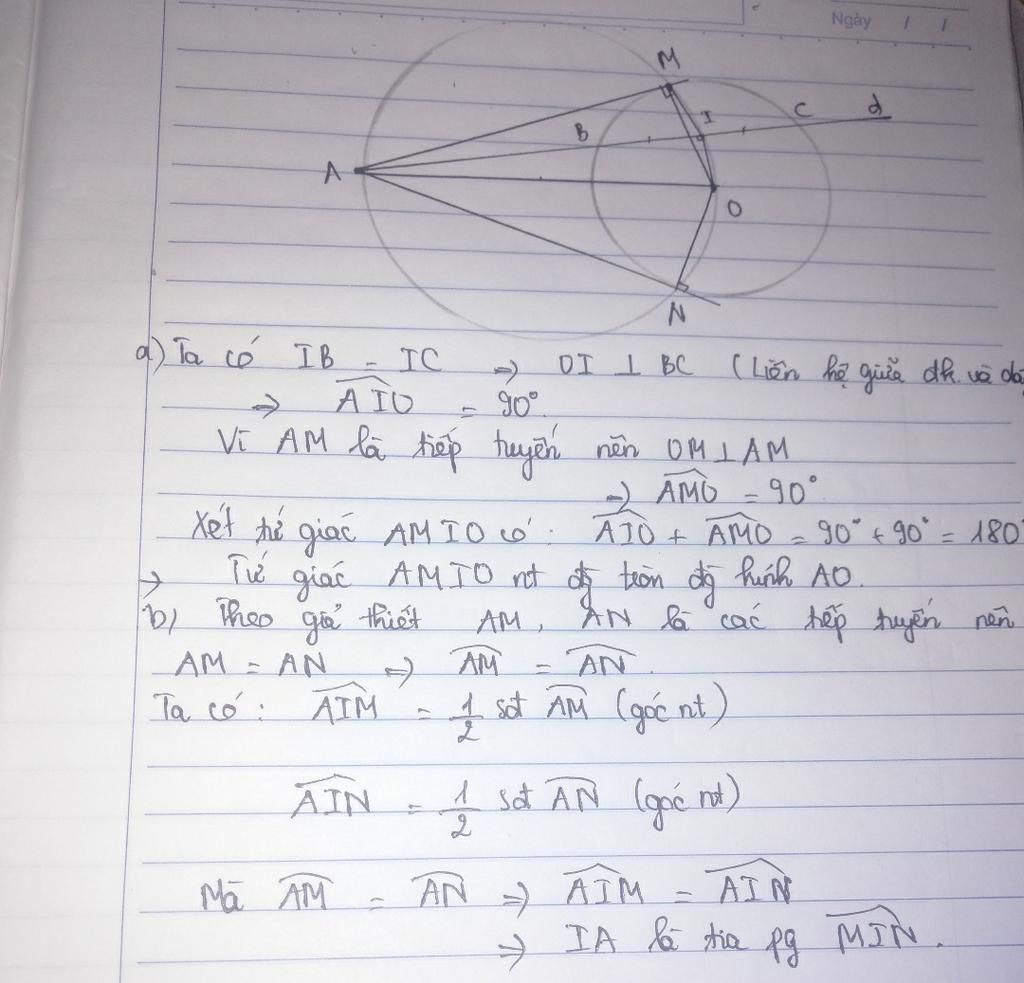 Ngày / /
M
I
C
d
B
A
O
N
a) Ta có IB = IC => OI ⊥ BC (Liên hệ giữa đk và dây
=> AIO = 90°
Vì AM là tiếp tuyến nên OM ⊥ AM
=> AMO = 90°
Xét tứ giác AMIO có: AIO + AMO = 90° + 90° = 180°
=> Tứ giác AMIO nt đg tròn đg kính AO.
b) Theo giả thiết AM, AN là các tiếp tuyến nên
AM = AN => AM = AN.
Ta có: AIM = 1/2 sđ AM (góc nt)
AIN = 1/2 sđ AN (góc nt)
Mà AM = AN => AIM = AIN
=> IA là tia pg MIN.